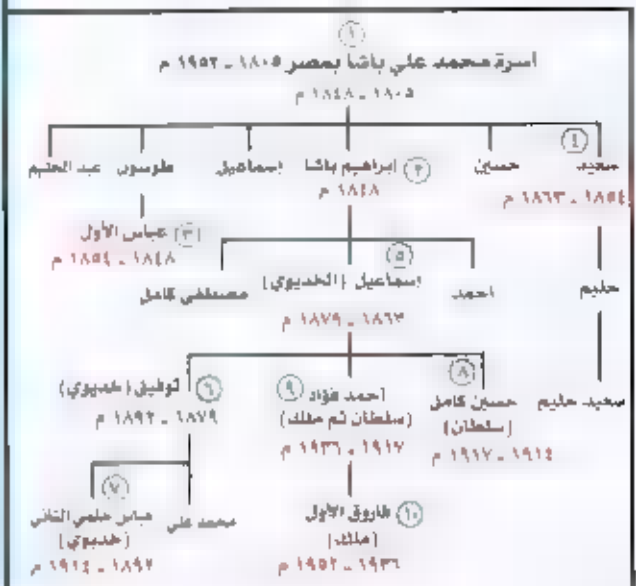 ١
أسرة محمد علي باشا بمصر ١٨٠٥ - ١٩٥٢ م
١٨٠٥ - ١٨٤٨ م
٤ سعيد
حسين
٢ إبراهيم باشا
إسماعيل
طوسون
عبد الحليم
١٨٥٤ - ١٨٦٣ م
١٨٤٨ م
٣ عباس الأول
١٨٤٨ - ١٨٥٤ م
حليم
احمد
٥
إسماعيل (الخديوي)
مصطفى كامل
١٨٦٣ - ١٨٧٩ م
سعيد حليم
٨
حسين كامل
(سلطان)
١٩١٤ - ١٩١٧ م
٩ أحمد فؤاد
(سلطان ثم ملك)
١٩١٧ - ١٩٣٦ م
٦ توفيق (خديوي)
١٨٧٩ - ١٨٩٢ م
١٠ فاروق الأول
(ملك)
١٩٣٦ - ١٩٥٢ م
محمد علي
٧
عباس حلمي الثاني
(خديوي)
١٨٩٢ - ١٩١٤ م